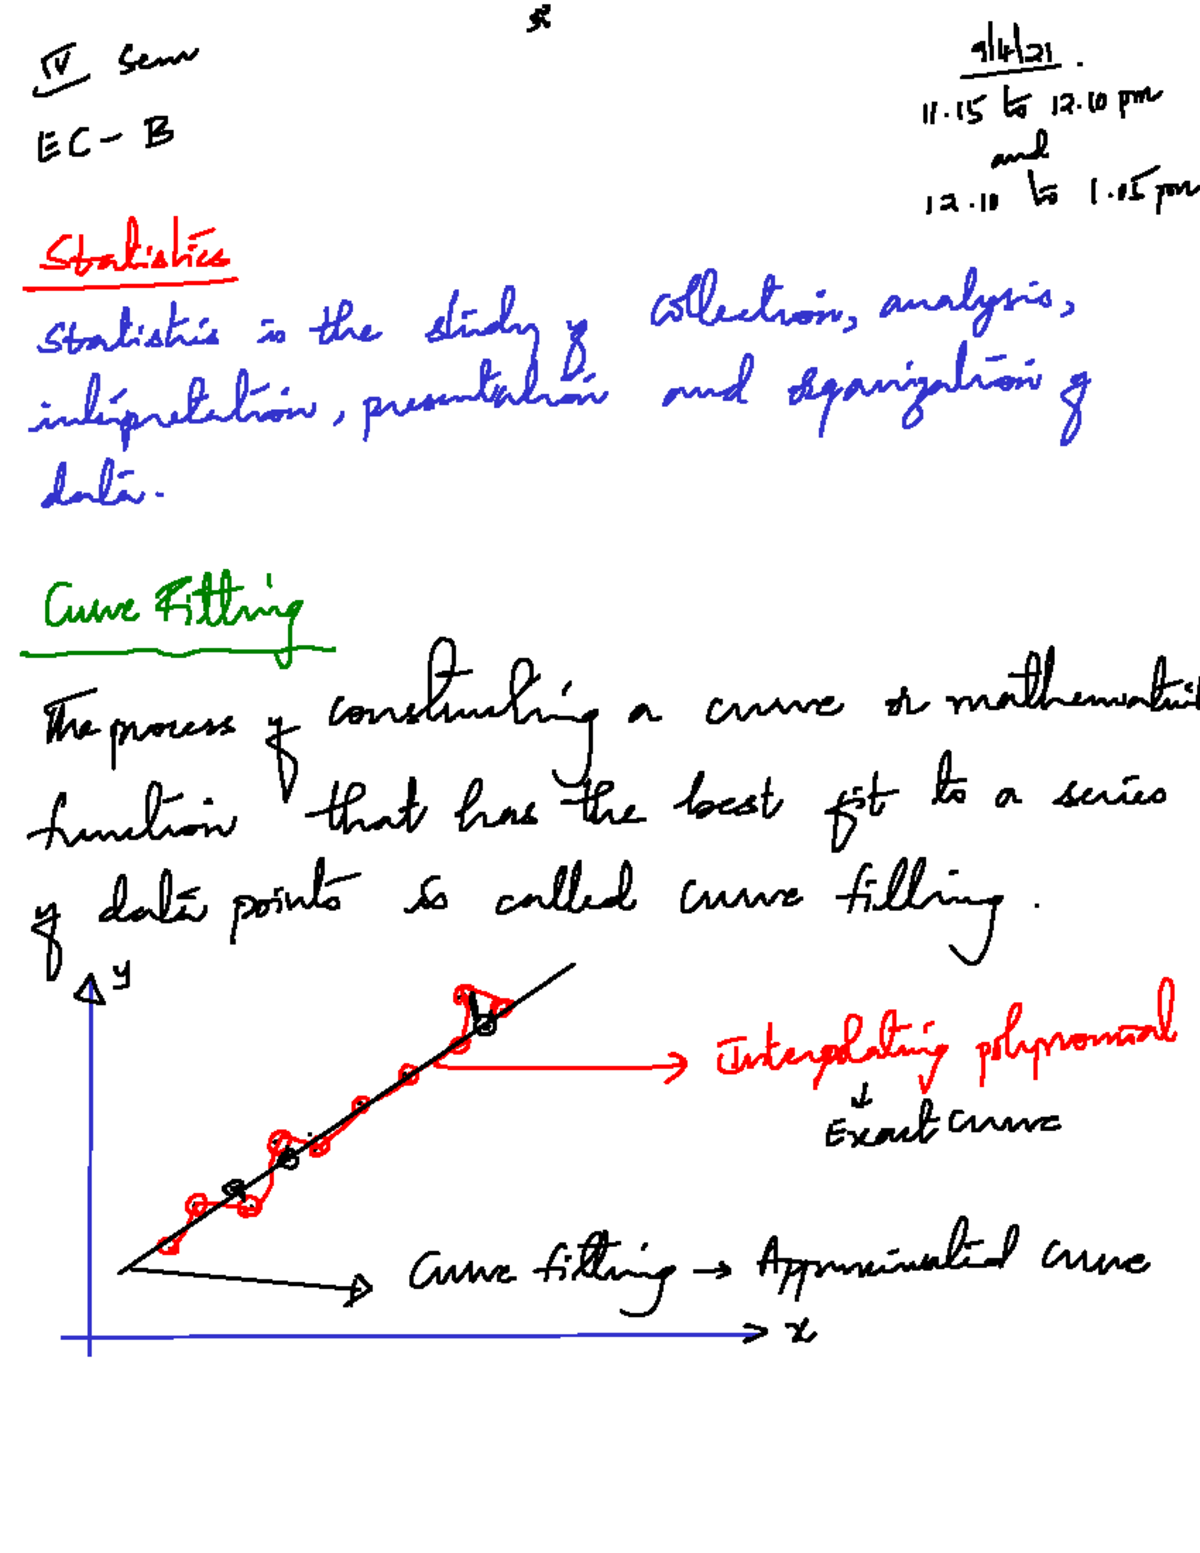 IV Sem
EC - B
9/4/21.
11.15 to 12.10 pm
and
12.10 to 1.05 pm
Statistics
Statistics is the study of collection, analysis,
interpretation, presentation and organization of
data.
Curve Fitting
The process of constructing a curve or mathematical
function that has the best fit to a series
of data points is called curve fitting.
y
Interpolating polynomial
↓
Exact curve
Curve fitting → Approximated curve
x